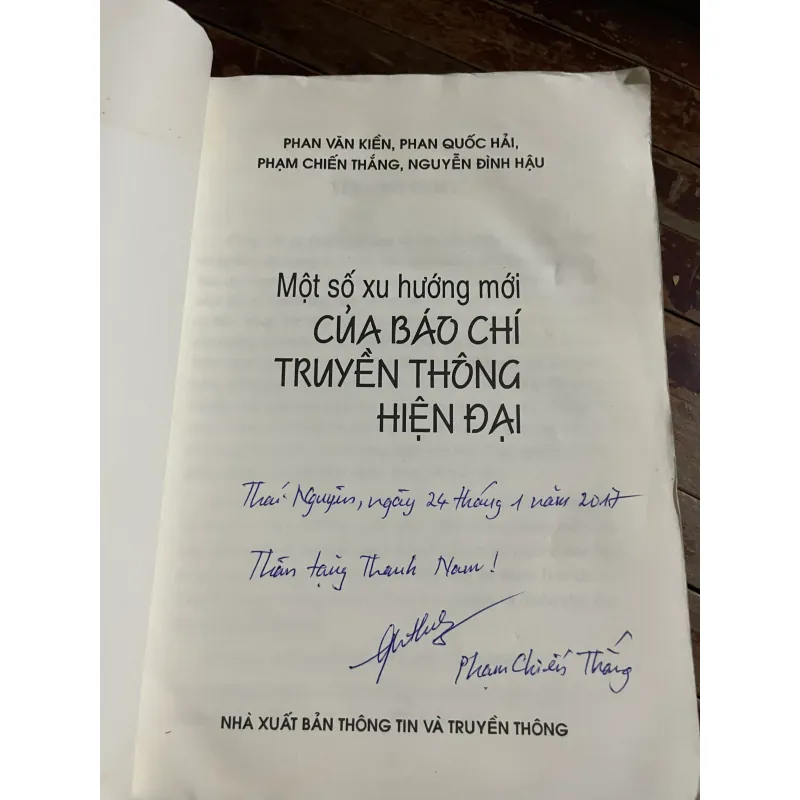 PHAN VĂN KIỀN, PHAN QUỐC HẢI,
PHẠM CHIẾN THẮNG, NGUYỄN ĐÌNH HẬU
Một số xu hướng mới
CỦA BÁO CHÍ
TRUYỀN THÔNG
HIỆN ĐẠI
Thái Nguyên, ngày 24 tháng 1 năm 2017
Thân tặng Thanh Nam!
Phạm Chiến Thắng
NHÀ XUẤT BẢN THÔNG TIN VÀ TRUYỀN THÔNG